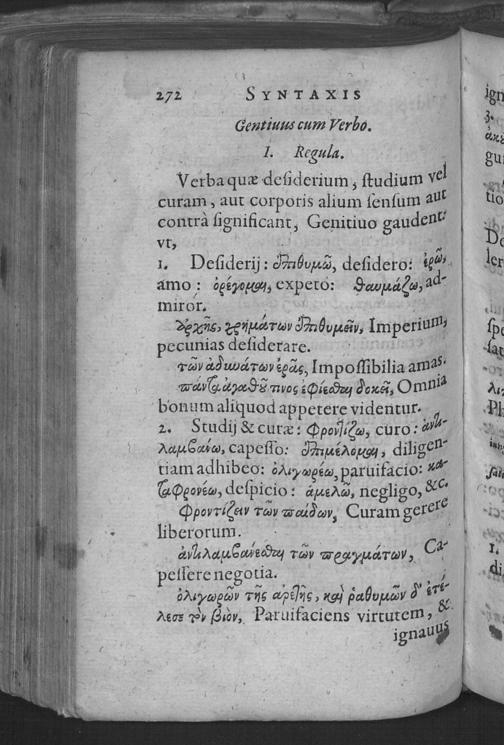 272 SYNTAXIS
Genitiuus cum Verbo.
I. Regula.
Verba quæ desiderium, studium vel
curam, aut corporis alium sensum aut
contrà significant, Genitiuo gaudent:
vt,
1. Desiderij: ἐπιθυμῶ, desidero: ἐρῶ,
amo: ὀρέγομαι, expeto: θαυμάζω, ad-
miror.
ἀρχῆς, χρημάτων ἐπιθυμεῖν, Imperium,
pecunias desiderare.
τῶν ἀδυνάτων ἐρᾷς, Impossibilia amas.
πάντα ἀγαθοῦ τινος ἐφίεσθαι δοκεῖ, Omnia
bonum aliquod appetere videntur.
2. Studij & curæ: φροντίζω, curo: ἀντι-
λαμβάνω, capesso: ἐπιμέλομαι, diligen-
tiam adhibeo: ὀλιγωρέω, paruifacio: κα-
ταφρονέω, despicio: ἀμελῶ, negligo, &c.
φροντίζειν τῶν παίδων, Curam gerere
liberorum.
ἀντιλαμβάνεσθαι τῶν πραγμάτων, Ca-
pessere negotia.
ὀλιγωρῶν τῆς ἀρετῆς, καὶ ῥαθυμῶν δ' ἐτέ-
λεσε τὸν βιὸν, Paruifaciens virtutem, &
ignauus